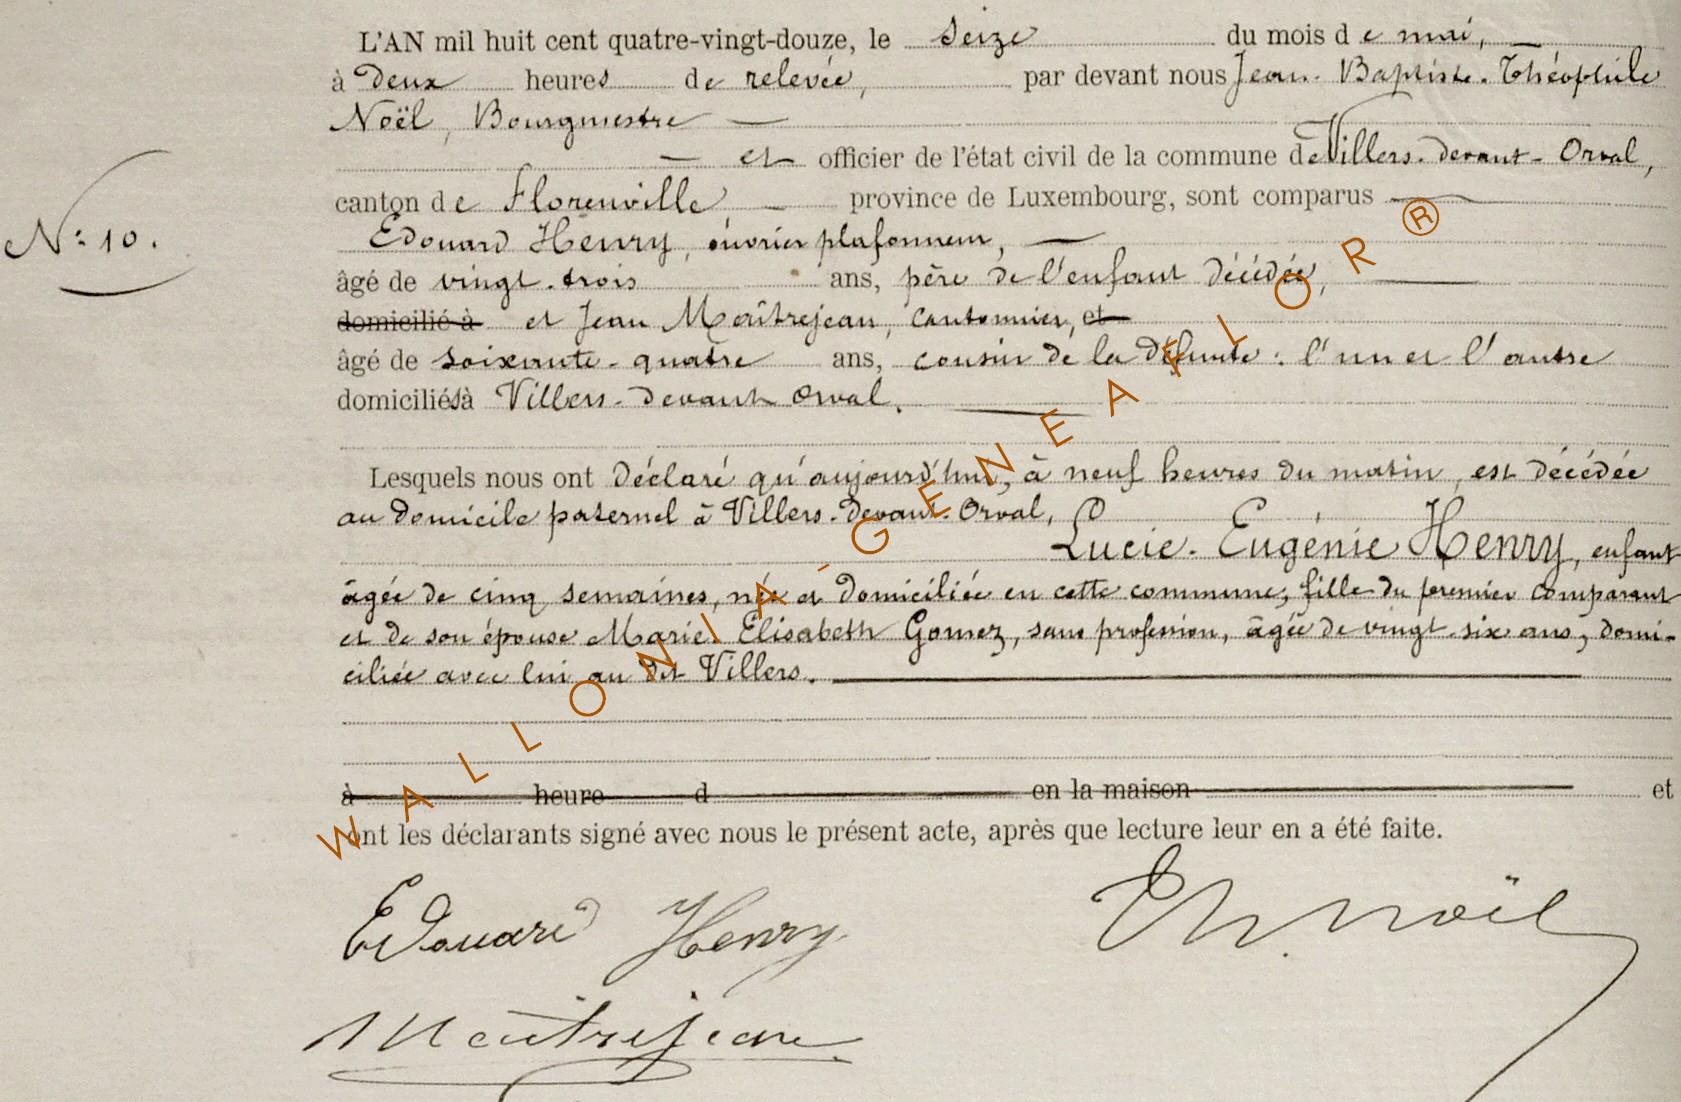 L'AN mil huit cent quatre-vingt-douze, le seize du mois de mai,
à deux heures de relevée, par devant nous Jean-Baptiste-Théophile
Noël, Bourgmestre
et officier de l'état civil de la commune de Villers-devant-Orval,
canton de Florenville province de Luxembourg, sont comparus
N: 10.
Edouard Henry, ouvrier plafonneur,
âgé de vingt-trois ans, père de l'enfant décédée,
domicilié à et Jean Maîtrejean, cantonnier, et
âgé de soixante-quatre ans, cousin de la défunte: l'un et l'autre
domiciliés à Villers-devant Orval.
Lesquels nous ont déclaré qu'aujourd'hui, à neuf heures du matin, est décédée
au domicile paternel à Villers-devant-Orval,
Lucie-Eugénie Henry, enfant
âgée de cinq semaines, née et domiciliée en cette commune, fille du premier comparant
et de son épouse Marie Elisabeth Gomez, sans profession, âgée de vingt-six ans, domi-
ciliée avec lui au dit Villers.
à heure d en la maison et
ont les déclarants signé avec nous le présent acte, après que lecture leur en a été faite.
Edouard Henry
Th. Noël
Maîtrejean
WALLONIA-GENEAFLOR®